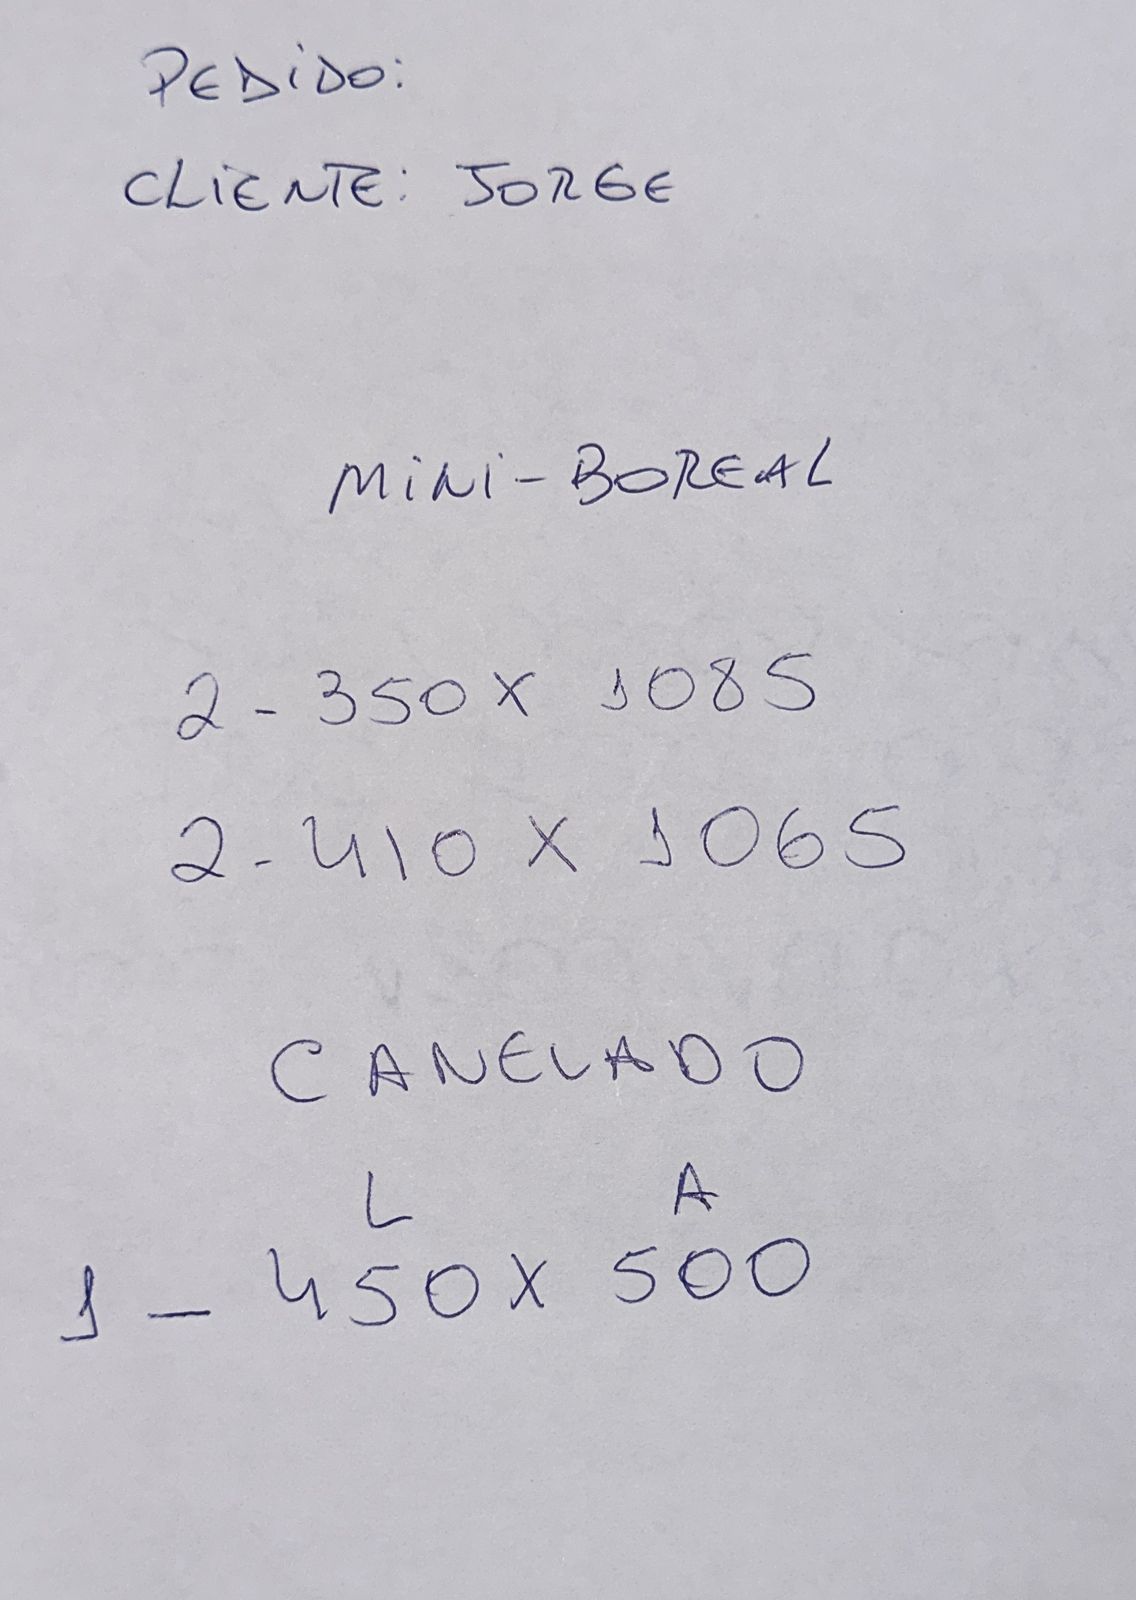 PEDIDO:
CLIENTE: JORGE
MINI-BOREAL
2 - 350 X 1085
2 - 410 X 1065
CANELADO
L A
1 - 450 X 500